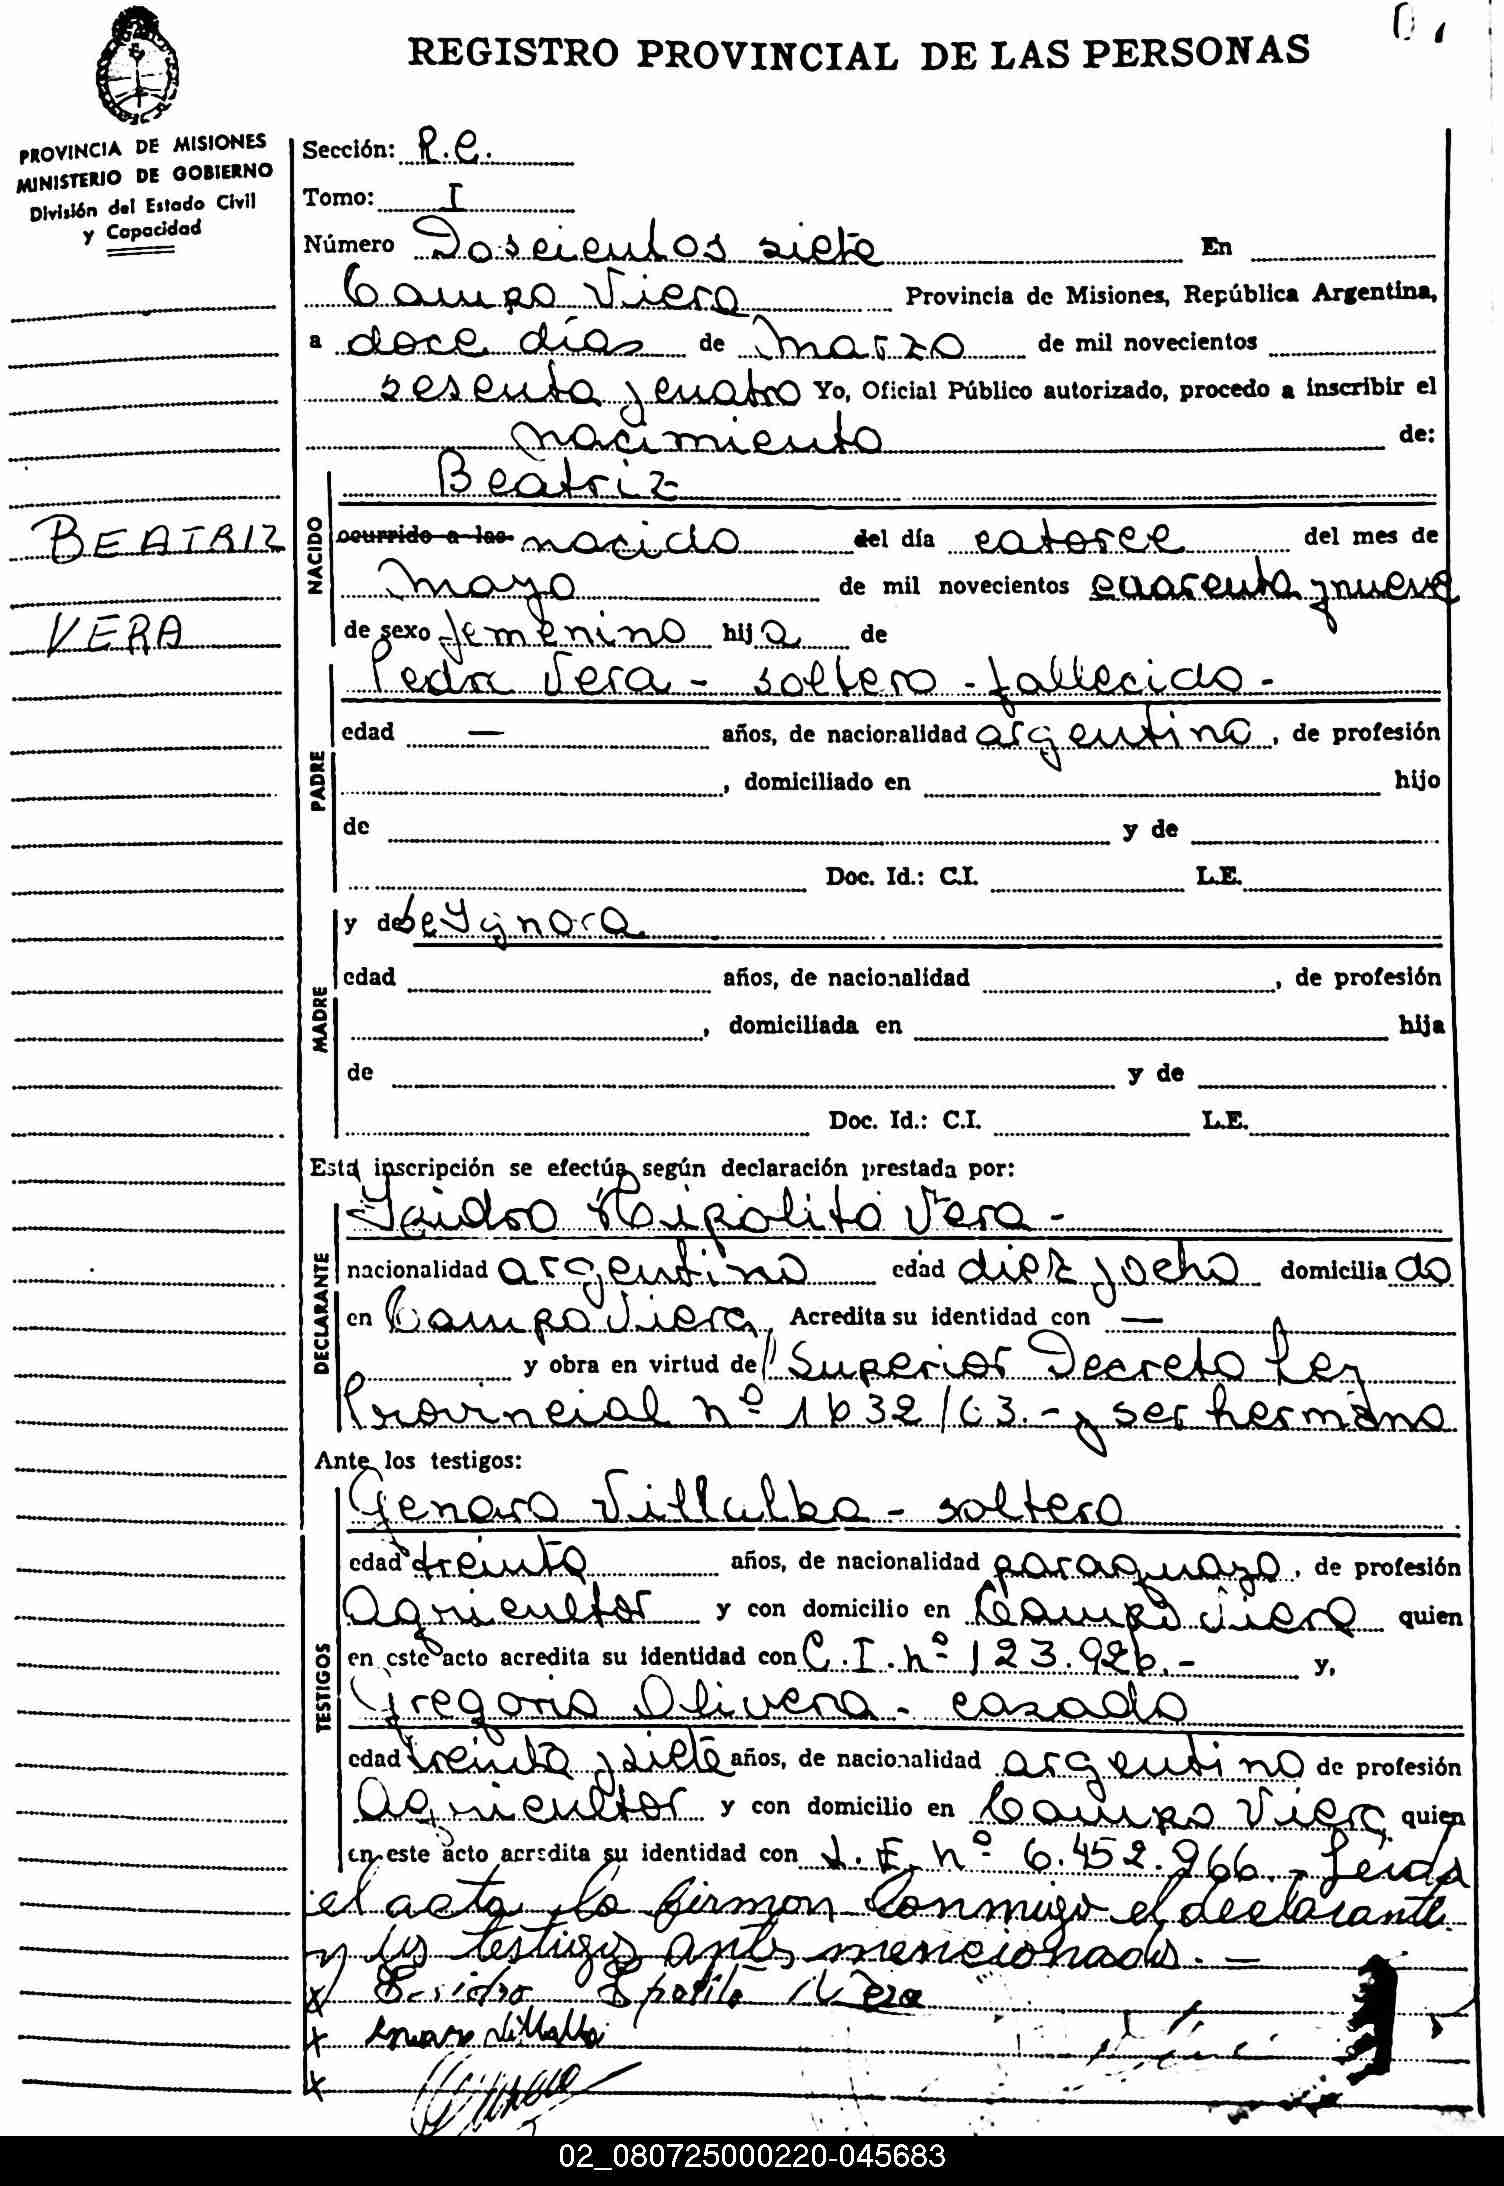 REGISTRO PROVINCIAL DE LAS PERSONAS
PROVINCIA DE MISIONES
MINISTERIO DE GOBIERNO
División del Estado Civil
y Capacidad
Sección: R.C.
Tomo: I
Número Doscientos siete En
Campo Viera Provincia de Misiones, República Argentina,
a doce días de Marzo de mil novecientos
sesenta y cuatro Yo, Oficial Público autorizado, procedo a inscribir el
nacimiento de:
Beatriz
BEATRIZ
VERA
NACIDO
ocurrido a las nacido del día catorce del mes de
Mayo de mil novecientos cuarenta y nueve
de sexo femenino hija de
Pedro Vera - soltero - fallecido -
PADRE
edad — años, de nacionalidad argentina, de profesión
, domiciliado en hijo
de y de
Doc. Id.: C.I. L.E.
MADRE
y de Se Ignora
edad años, de nacionalidad , de profesión
, domiciliada en hija
de y de
Doc. Id.: C.I. L.E.
Esta inscripción se efectúa según declaración prestada por:
DECLARANTE
Isidro Hipolito Vera -
nacionalidad argentino edad diez y ocho domiciliado
en Campo Viera, Acredita su identidad con —
y obra en virtud del Superior Decreto Ley
Provincial nº 1632/63.- y ser hermano
Ante los testigos:
TESTIGOS
Genaro Villalba - soltero
edad treinta años, de nacionalidad paraguayo, de profesión
Agricultor y con domicilio en Campo Viera quien
en este acto acredita su identidad con C.I. nº 123.926.- y,
Gregorio Olivera - casado
edad treinta y siete años, de nacionalidad argentino de profesión
Agricultor y con domicilio en Campo Viera quien
en este acto acredita su identidad con L.E. nº 6.452.966. - Leída
el acta, la firman conmigo el declarante
y los testigos antes mencionados. —
x Esidro Epolito Vera
x Villalba
x
02_080725000220-045683